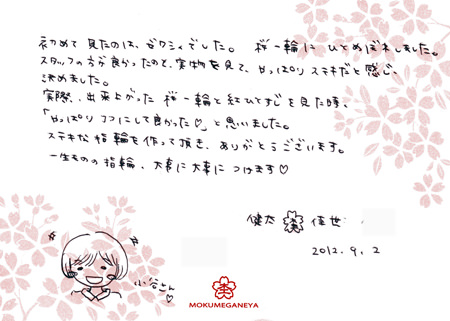 初めて見たのは、ゼクシィでした。桜一輪にひとめぼれしました。
スタッフの方が良かったので、実物を見て、やっぱりステキだと感じ、
決めました。
実際、出来上がった桜一輪と紅ひとすじを見た時、
「やっぱりココにして良かった♡」と思いました。
ステキな指輪を作って頂き、ありがとうございます。
一生ものの指輪、大事に大事につけます♡
健太 佳世
2012.9.2
小谷さん
MOKUMEGANEYA